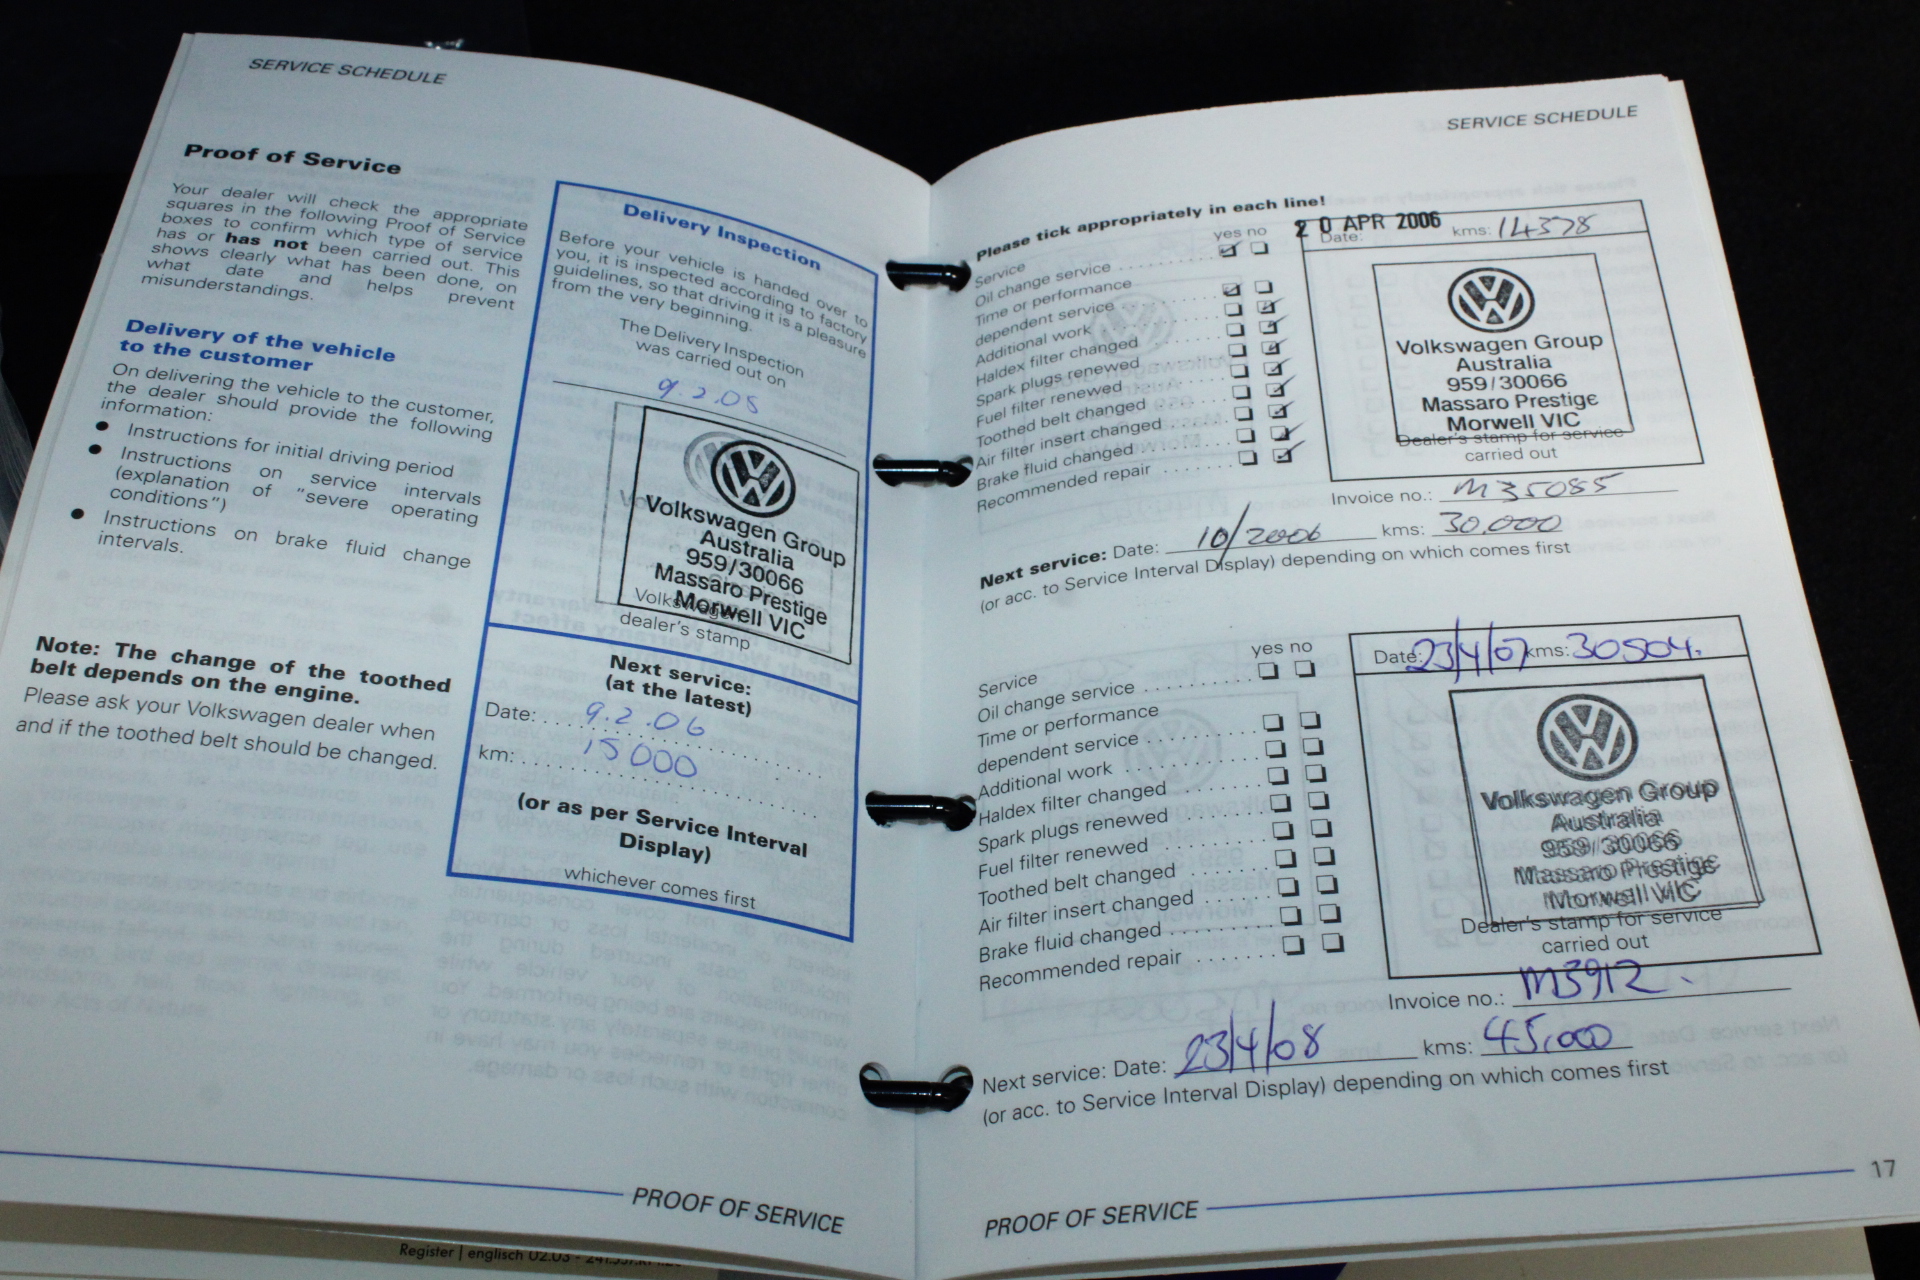 SERVICE SCHEDULE
Proof of Service
Your dealer will check the appropriate
squares in the following Proof of Service
boxes to confirm which type of service
has or has not been carried out. This
shows clearly what has been done, on
what date and helps prevent
misunderstandings.
Delivery of the vehicle
to the customer
On delivering the vehicle to the customer,
the dealer should provide the following
information:
● Instructions for initial driving period
● Instructions on service intervals
(explanation of "severe operating
conditions")
● Instructions on brake fluid change
intervals.
Note: The change of the toothed
belt depends on the engine.
Please ask your Volkswagen dealer when
and if the toothed belt should be changed.
Delivery Inspection
Before your vehicle is handed over to
you, it is inspected according to factory
guidelines, so that driving it is a pleasure
from the very beginning.
The Delivery Inspection
was carried out on
9.2.05
Volkswagen Group
Australia
959/30066
Massaro Prestige
Morwell VIC
Volkswagen
dealer's stamp
Next service:
(at the latest)
Date: 9.2.06
km: 15000
(or as per Service Interval
Display)
whichever comes first
PROOF OF SERVICE
SERVICE SCHEDULE
Please tick appropriately in each line!
yes no
Service
Oil change service
Time or performance
dependent service
Additional work
Haldex filter changed
Spark plugs renewed
Fuel filter renewed
Toothed belt changed
Air filter insert changed
Brake fluid changed
Recommended repair
20 APR 2006
Date: kms: 14378
Volkswagen Group
Australia
959/30066
Massaro Prestige
Morwell VIC
Dealer's stamp for service
carried out
Invoice no.: M35085
Next service: Date: 10/2006 kms: 30.000
(or acc. to Service Interval Display) depending on which comes first
yes no
Service
Oil change service
Time or performance
dependent service
Additional work
Haldex filter changed
Spark plugs renewed
Fuel filter renewed
Toothed belt changed
Air filter insert changed
Brake fluid changed
Recommended repair
Date: 23/4/07 kms: 30504.
Volkswagen Group
Australia
959/30066
Massaro Prestige
Morwell VIC
Dealer's stamp for service
carried out
Invoice no.: M3912
Next service: Date: 23/4/08 kms: 45,000
(or acc. to Service Interval Display) depending on which comes first
PROOF OF SERVICE
17
Register | englisch 02.03